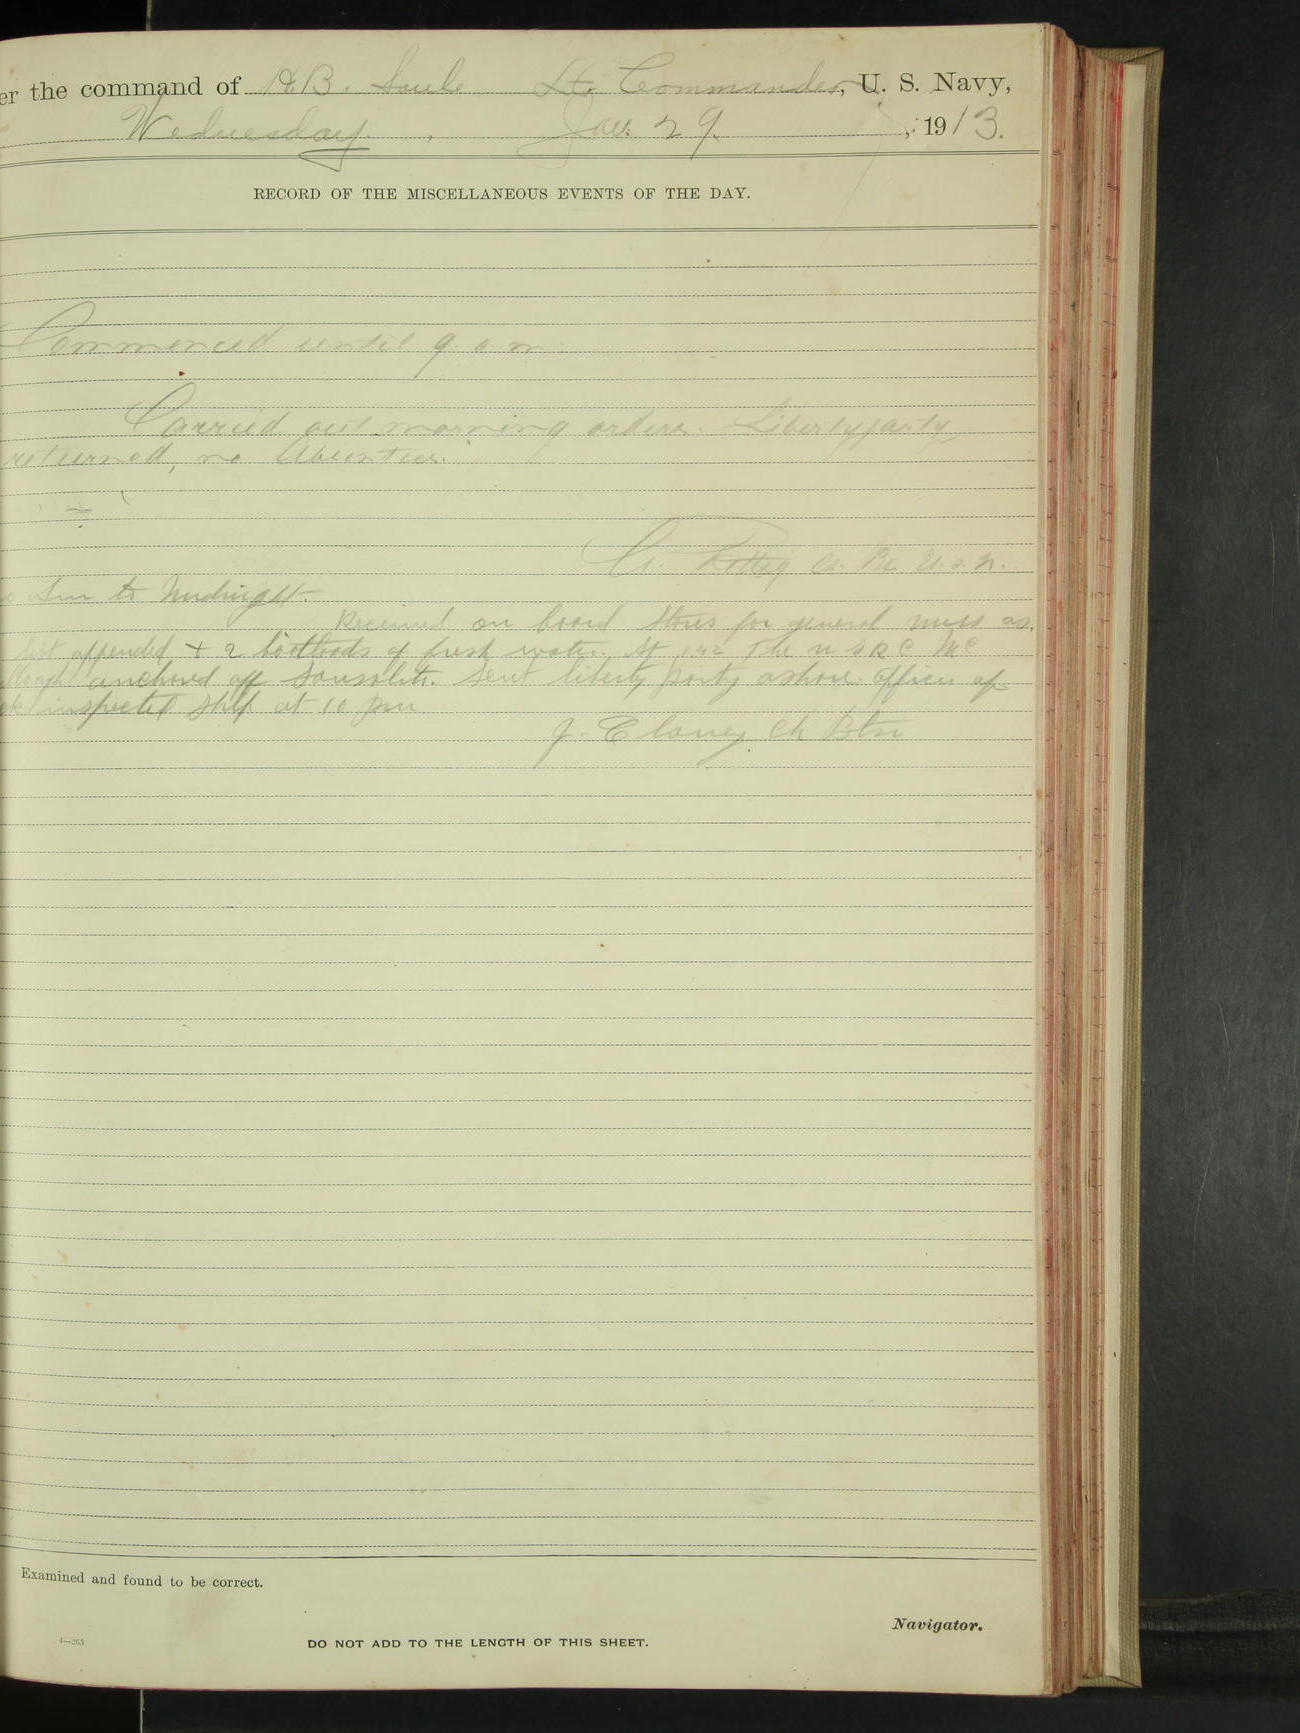 er the command of H. B. Soule Lt. Commander, U. S. Navy,
Wednesday. Jan. 29, 1913.
RECORD OF THE MISCELLANEOUS EVENTS OF THE DAY.
Commenced until 9 a m
Carried out morning orders. Liberty party
returned, no absentees.
U. S. N.
to Midnight.
Received on board stores for general mess as
list appended + 2 boatloads of fresh water. At The U S R C Mc
anchored off Sausalito. Sent liberty party ashore. officer of
inspected ship at 10 pm
J. Clancy Ch Btsn
Examined and found to be correct.
Navigator.
DO NOT ADD TO THE LENGTH OF THIS SHEET.